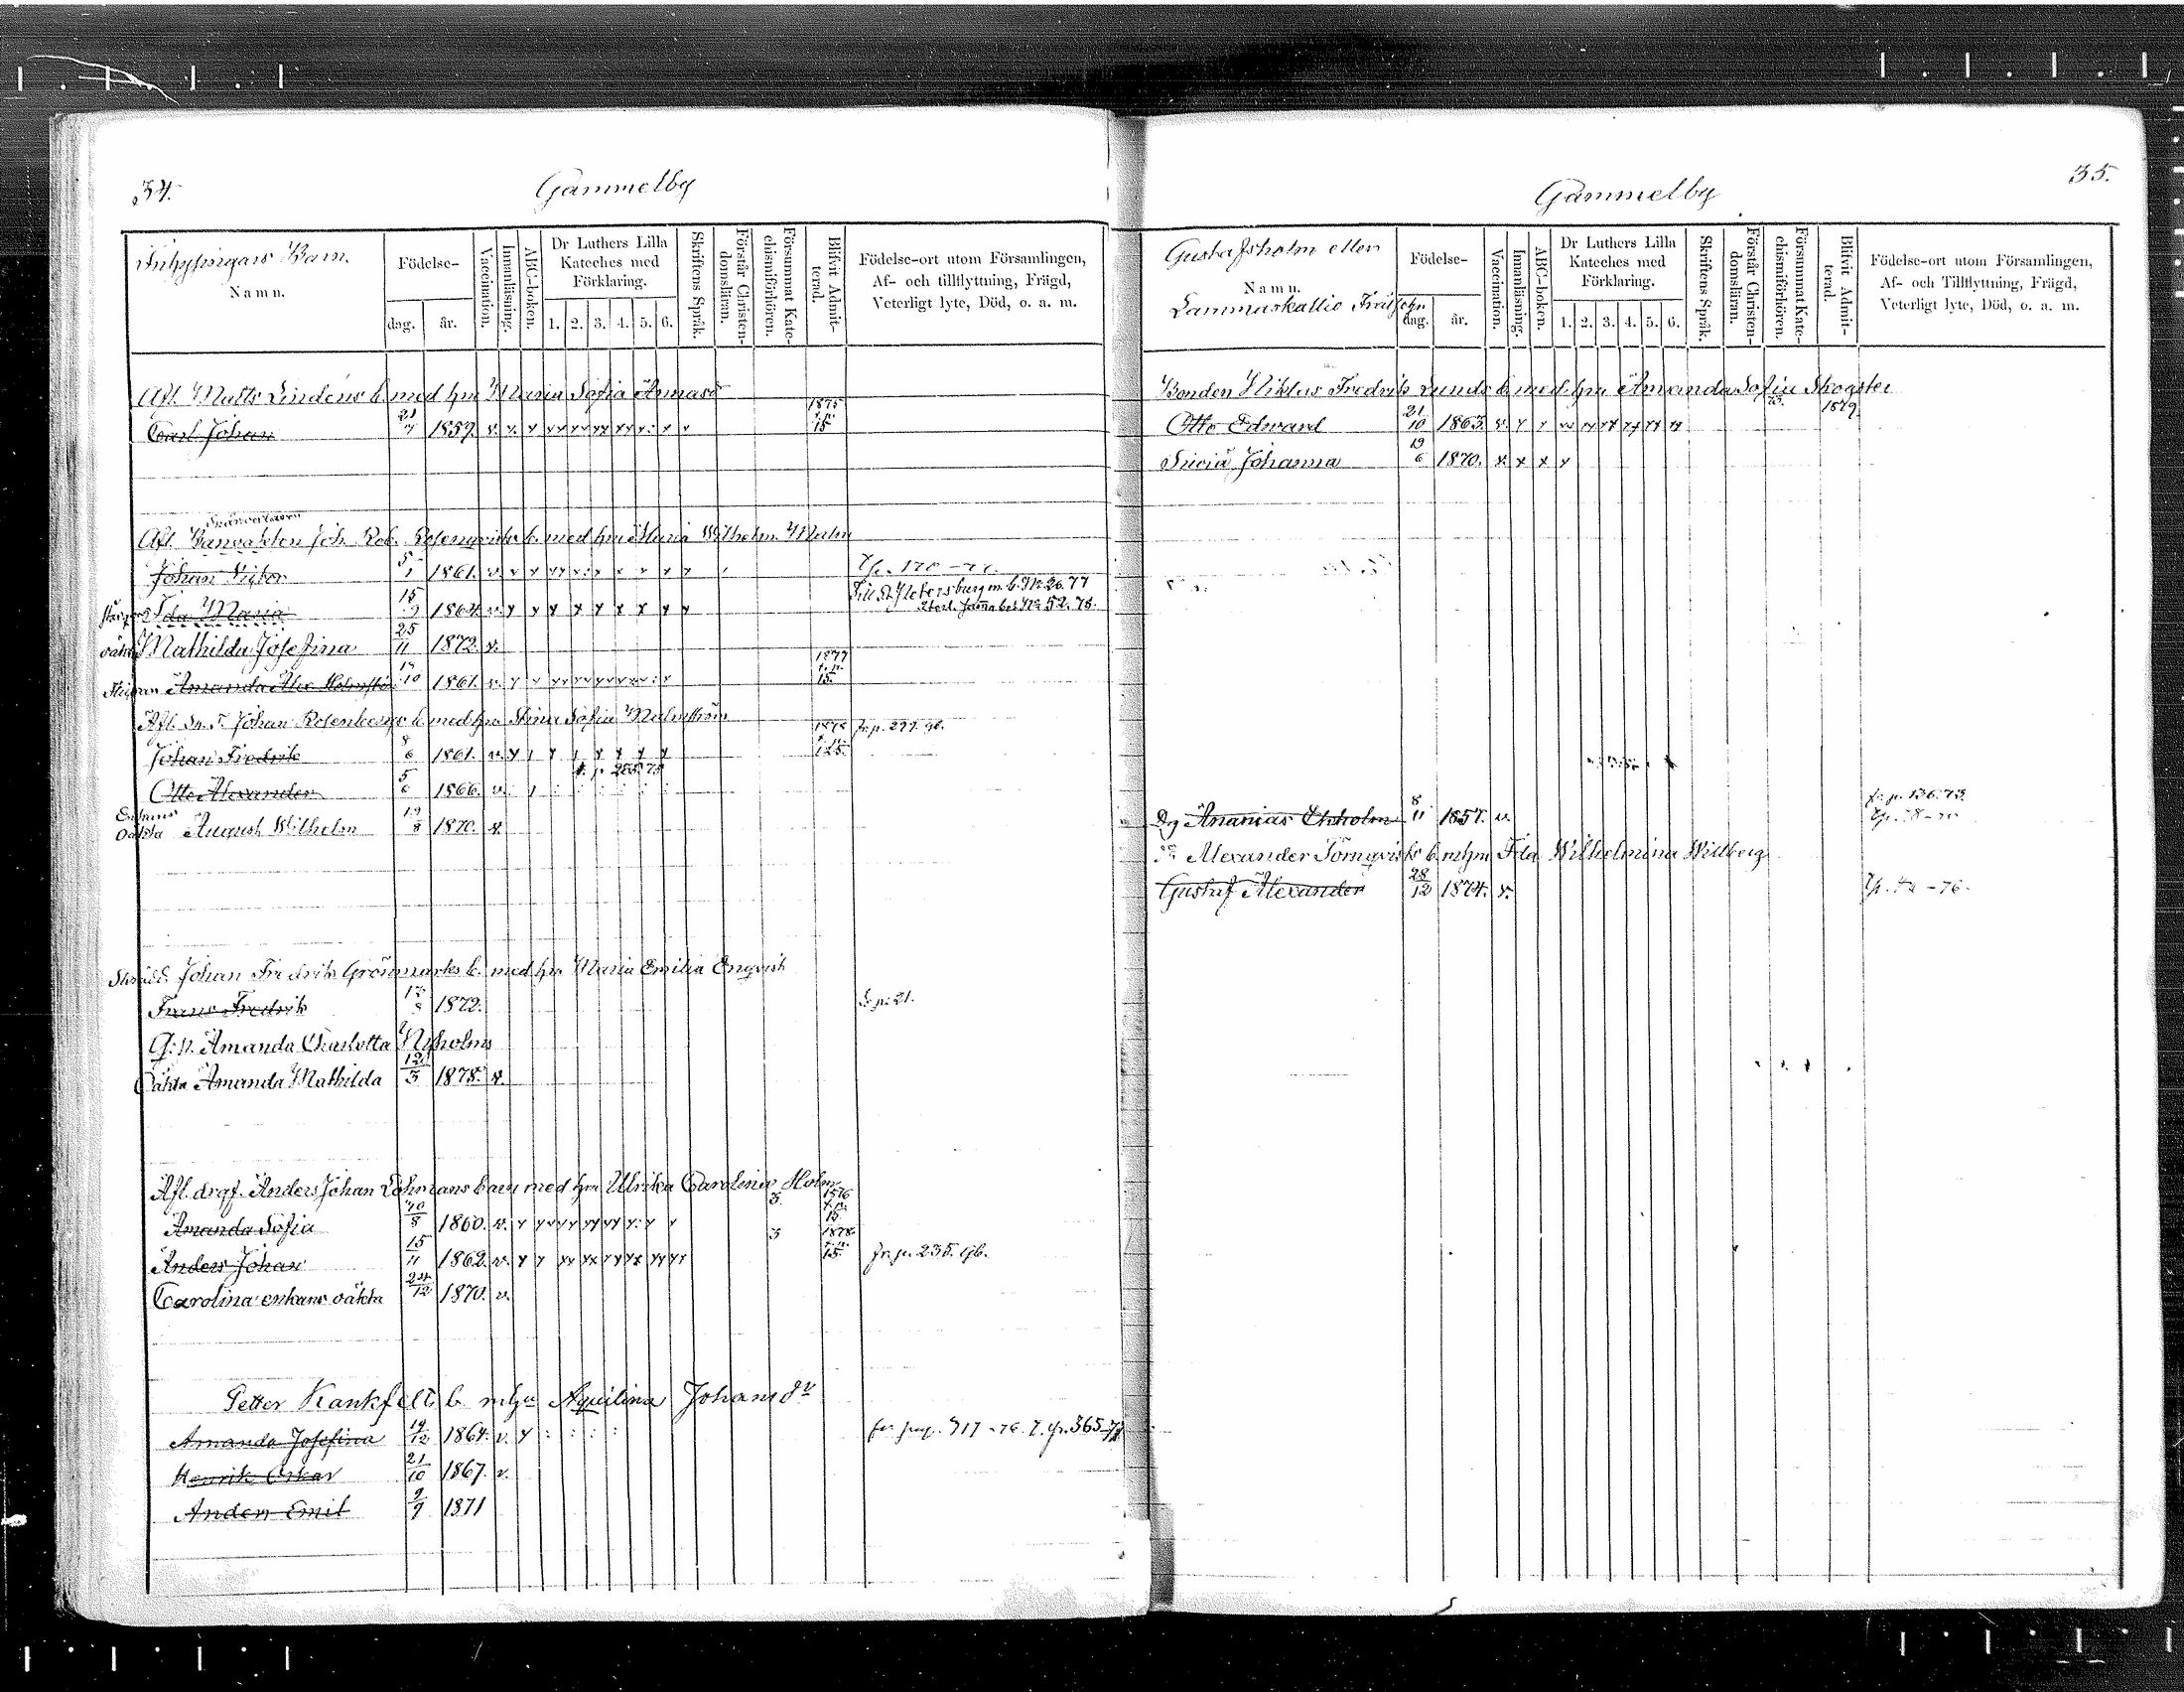 34.
Gammelby
Inhysingars Barn.
Namn.
Födelse-
dag. år.
Vaccination.
Innanläsning.
ABC-boken.
Dr Luthers Lilla Kateches med Förklaring.
1. 2. 3. 4. 5. 6.
Skriftens Språk.
Förstår Christendomsläran.
Försummat Katechismiförhören.
Blifvit Admitterad.
Födelse-ort utom Församlingen, Af- och tillflyttning, Frägd, Veterligt lyte, Död, o. a. m.
Afl. Matts Lindéns b. med hu Maria Sofia
Carl Johan 21/7 1859. v. 1875 15
Afl. Joh. Rob. Rosenqvists b. med hu Maria Wilhelm. Malm
Johan Viktor 5/1 1861. v.
Till St Petersburg m. b. No 26. 77
Ida Maria 15/9 1864. v.
oäkta Mathilda Josefina 25/11 1872. v.
Amanda Alex. 10 1861. v. 1877 15.
Afl. Johan Rosenbergs b. med hu Stina Sofia Malmström
Johan Fredrik 8/6 1861. v. 1878 fr. p. 297. gb.
Otto Alexander 5/6 1866. v.
Enkans oäkta August Wilhelm 19/8 1870. v.
Johan Fredrik Grönmarks b. med hu Maria Emilia Enqvist
Frans Fredrik 8 1872. p. 21.
Amanda Charlotta Nyholms
Oäkta Amanda Mathilda 12/3 1878. v.
Afl. drgf. Anders Johan Lohmans barn med hu Ulrika Carolina Holm
Amanda Sofia 10/8 1860. v. 3. 1876 15.
Anders Johan 15/11 1862. v. 3 1878 15. fr. p. 235. gb.
Carolina enkans oäkta 24/12 1870. v.
Petter Kankfelts b. mhu Aquilina Johansdr
Amanda Josefina 19/12 1864. v.
Henrik Oskar 21/10 1867. v.
Anders Emil 9/9 1871
35.
Gammelby
Gustafsholm eller
Namn.
Lammaskallio
Födelse-
dag. år.
Vaccination.
Innanläsning.
ABC-boken.
Dr Luthers Lilla Kateches med Förklaring.
1. 2. 3. 4. 5. 6.
Skriftens Språk.
Förstår Christendomsläran.
Försummat Katechismiförhören.
Blifvit Admitterad.
Födelse-ort utom Församlingen, Af- och Tillflyttning, Frägd, Veterligt lyte, Död, o. a. m.
Bonden Niklas Fredrik Lunds b. med hu Amanda Sofia Skogster
Otto Edward 21/10 1863. v. 1879.
Johanna 19/6 1870. v.
Dg Ananias Ekholm 8/11 1857. v. fr. p. 136. 73.
Alexander Törnqvists b. mhu Ida Wilhelmina Willberg
Gustaf Alexander 28/12 1874. v.